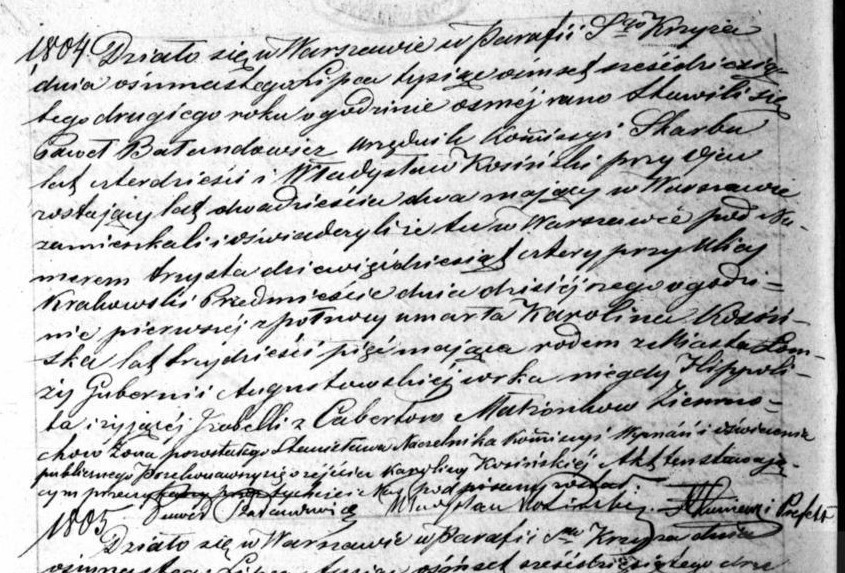 1804 Działo się w Warszawie w Parafii Sgo Krzyża
dnia ośmnastego Lipca tysiąc ośmset sześćdziesią-
tego drugiego roku o godzinie ósméj rano Stawili się
Paweł urzędnik Kommisyi Skarbu
lat czterdzieści i Władysław Kosiński przy Ojcu
zostający lat dwadzieścia dwa mający w Warszawie
zamieszkali i oświadczyli że tu w Warszawie pod Nu-
merem trzysta dziewięćdziesiąt cztery przy Ulicy
Krakowskie Przedmieście dnia dzisiéjszego o godzi=
nie pierwszéj z północy umarła Karolina Kosiń-
ska lat trzydzieści pięć mająca rodem z Miasta Łom-
ży Gubernii Augustowskiéj córka niegdy Hippoli-
ta i żyjącéj Izabelli z Małżonków Ziemia-
chów Żona pozostałego Stanisława Naczelnika Kommisyi Wyznań i oświecenia
publicznego Po przekonaniu się o zejściu Karoliny Kosińskiéj Akt ten stawają-
cym podpisany został
Władysław Kosiński Prefekt
1805 Działo się w Warszawie w Parafii Sgo Krzyża dnia
ośmnastego Lipca tysiąc ośmset sześćdziesiątego dru